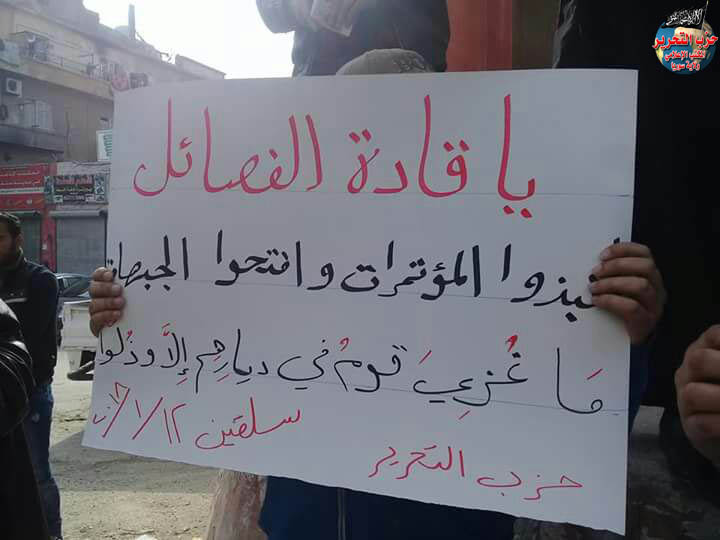 حزب التحرير
المكتب الإعلامي
ولاية سوريا
يا قادة الفصائل
انبذوا المؤتمرات وافتحوا الجبهات
مَا غُزِيَ قومٌ في ديارهم إلاَّ وذُلوا
سلقين ١٢/١/
حزب التحرير